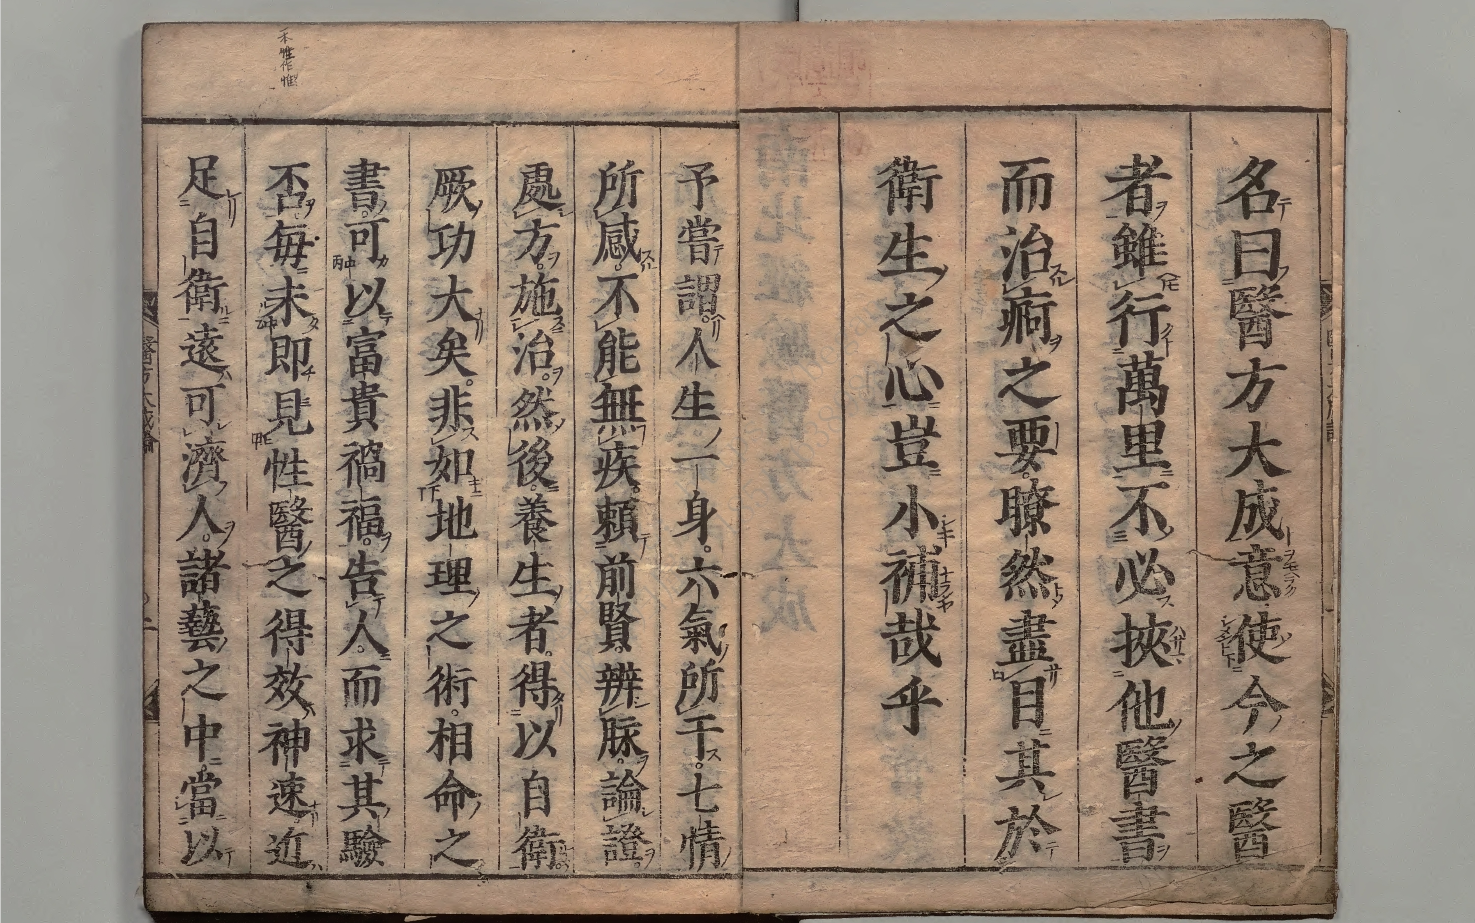 名曰醫方大成意使今之醫
者雖行萬里不必挾他醫書
而治痾之要瞭然盡目其於
衛生之心豈小補哉乎
予嘗謂人生一身六氣所干七情
所感不能無疾頼前賢辨脉論證
處方施治然後養生者得以自衛
厥功大矣非如地理之術相命之
書可以富貴禍福告人而求其驗
否毎未即見性醫之得效神速近
足自衛遠可濟人諸藝之中當以